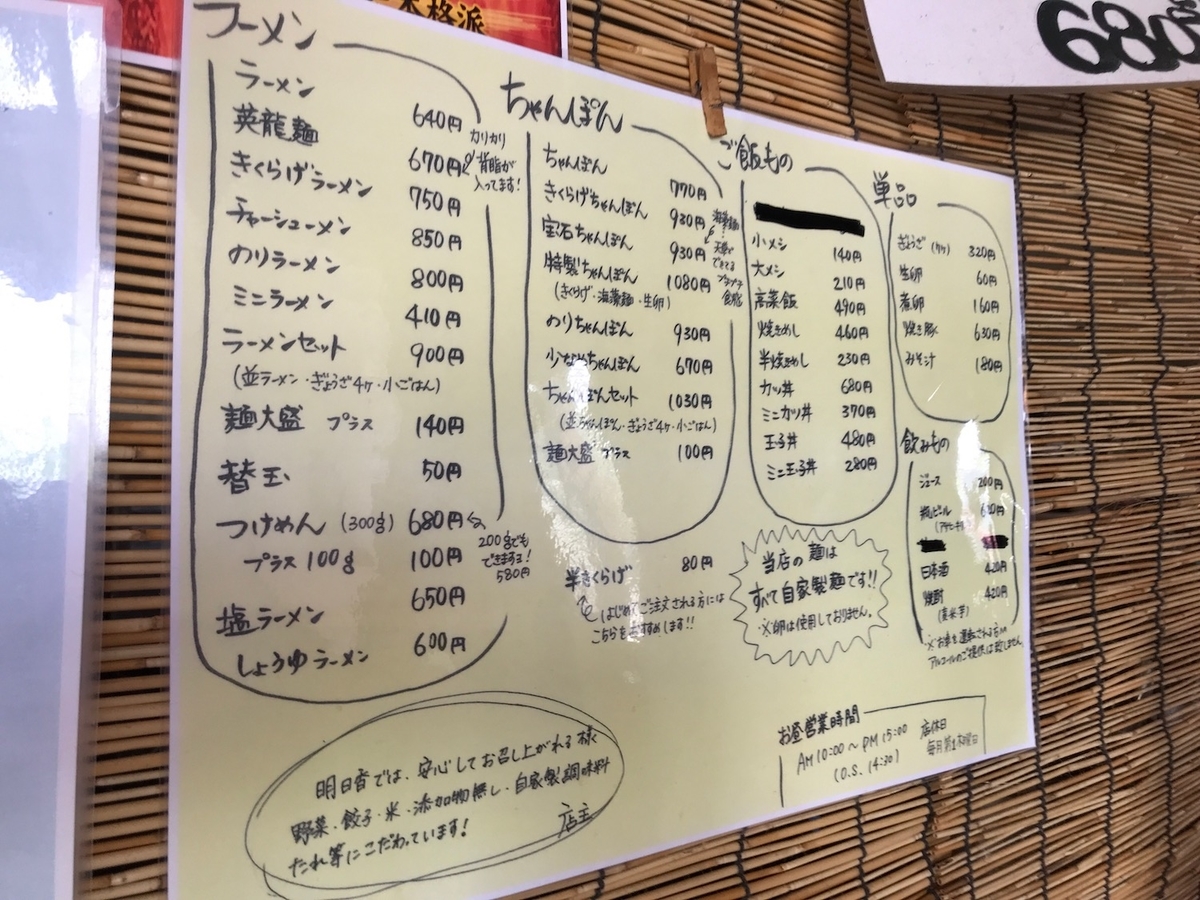 本格派
680
ラーメン
ラーメン 640円
英龍麺 670円
カリカリ
背脂が
入ってます!
きくらげラーメン 750円
チャーシューメン 850円
のりラーメン 800円
ミニラーメン 410円
ラーメンセット 900円
(並ラーメン・ぎょうざ4ヶ・小ごはん)
麺大盛 プラス 140円
替玉 50円
つけめん (300g) 680円
200gでも
できますョ!
580円
プラス100g 100円
塩ラーメン 650円
しょうゆラーメン 600円
ちゃんぽん
ちゃんぽん 770円
きくらげちゃんぽん 930円
宝石ちゃんぽん 930円
海藻麺
特製ちゃんぽん 1080円
(きくらげ・海藻麺・生卵)
のりちゃんぽん 930円
少なめちゃんぽん 670円
ちゃんぽんセット 1030円
(並ちゃんぽん・ぎょうざ4ヶ・小ごはん)
麺大盛 プラス 100円
半きくらげ 80円
はじめてご注文される方には
こちらをおすすめします!!
ご飯もの
小メシ 140円
大メシ 210円
高菜飯 490円
焼きめし 460円
半焼きめし 230円
カツ丼 680円
ミニカツ丼 370円
玉子丼 480円
ミニ玉子丼 280円
当店の麺は
すべて自家製麺です!!
※卵は使用しておりません。
単品
ぎょうざ (7ヶ) 320円
生卵 60円
煮卵 160円
焼き豚 630円
みそ汁 180円
飲みもの
ジュース 200円
瓶ビール
日本酒 420円
焼酎 420円
(麦・米・芋)
※お車を運転される方への
アルコールのご提供は致しません。
お昼営業時間
AM10:00～PM15:00
(O.S. 14:30)
店休日
明日香では、安心してお召し上がれる様
野菜・餃子・米・添加物無し・自家製調味料
たれ等にこだわっています!
店主